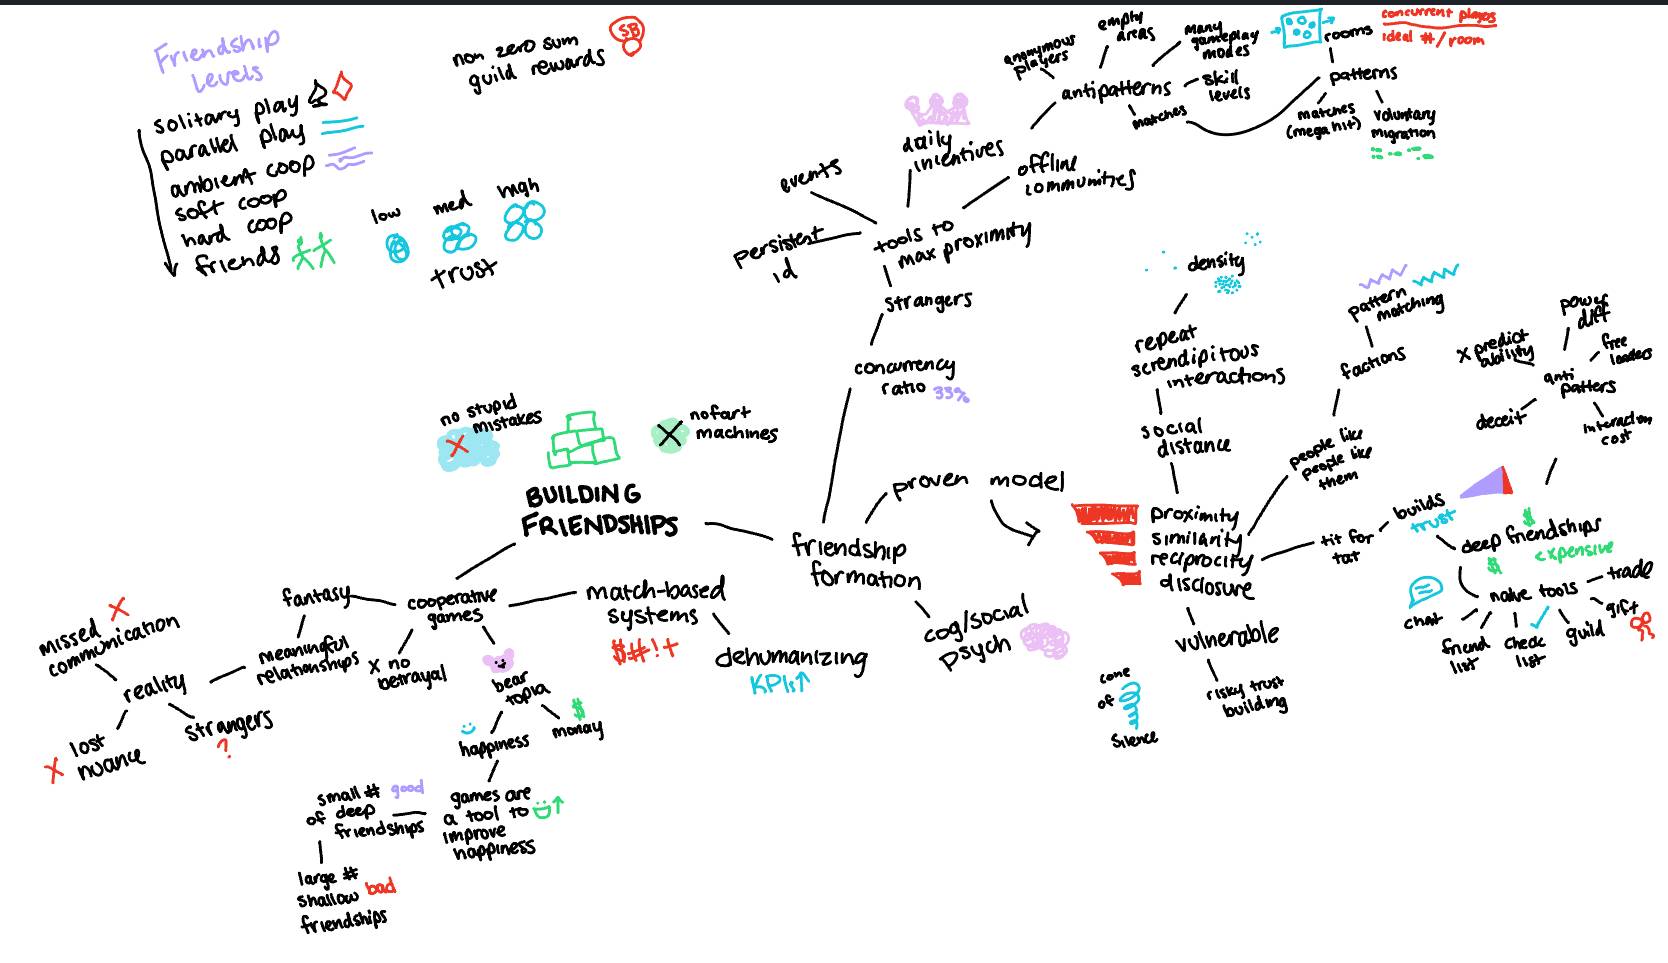 Friendship
Levels
solitary play
parallel play
ambient coop
soft coop
hard coop
friends
low
med
high
trust
non zero sum
guild rewards
SB
no stupid
mistakes
no fart
machines
BUILDING
FRIENDSHIPS
cooperative
games
fantasy
meaningful
relationships
reality
missed X
communication
X lost
nuance
strangers
?
X no
betrayal
bear
topia
happiness
$
money
games are
a tool to
improve
happiness
small # good
of deep
friendships
large #
shallow bad
friendships
match-based
systems
$#!+
dehumanizing
KPIs↑
friendship
formation
cog/social
psych
proven model
concurrency
ratio 33%
strangers
tools to
max proximity
persistent
id
events
daily
incentives
offline
communities
antipatterns
anonymous
players
empty
areas
many
gameplay
modes
skill
levels
matches
patterns
rooms
concurrent players
ideal #/room
matches
(mega hit)
voluntary
migration
proximity
similarity
reciprocity
disclosure
social
distance
repeat
serendipitous
interactions
density
people like
people like
them
factions
pattern
matching
tit for
tat
builds
trust
$
deep friendships
$ expensive
anti
patters
X predict
ability
power
diff
free
loaders
deceit
interaction
cost
native tools
chat
friend
list
check
list
guild
gift
trade
vulnerable
risky trust
building
cone
of
silence